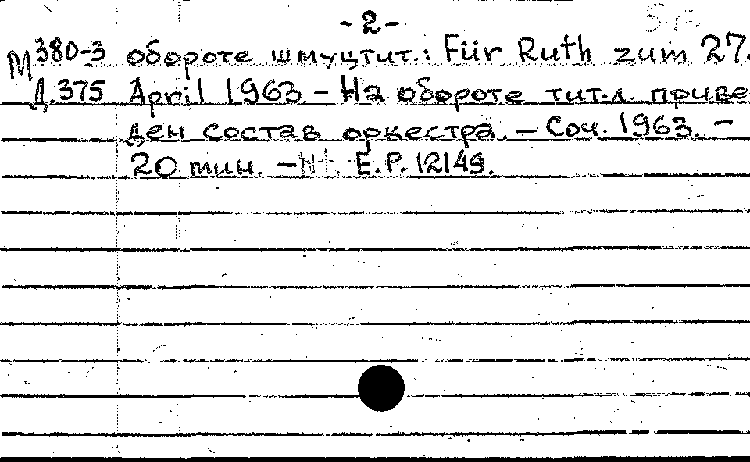 - 2 -
М 380-3 обороте шмуцтит.: Für Ruth zum 27.
Д.375 April 1963 - На обороте тит.л. приве
ден состав оркестра. - Соч. 1963. -
20 мин. - E.P. 12149.